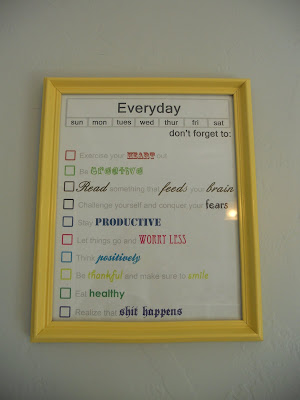 Everyday
sun mon tues wed thur fri sat
don't forget to:
Exercise your HEART out
Be CREATIVE
Read something that feeds your brain
Challenge yourself and conquer your fears
Stay PRODUCTIVE
Let things go and WORRY LESS
Think positively
Be thankful and make sure to smile
Eat healthy
Realize that shit happens